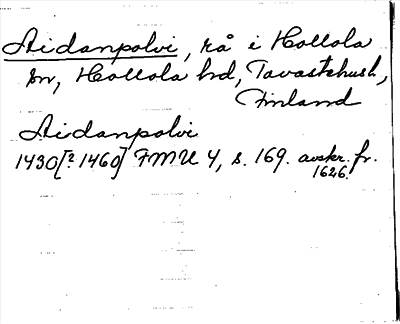 Aidanpolvi, rå i Hollola
sn, Hollola hd, Tavastehus l.,
Finland
Aidanpolvi
1430[? 1460] FMU 4, s. 169. avskr. fr.
1626.